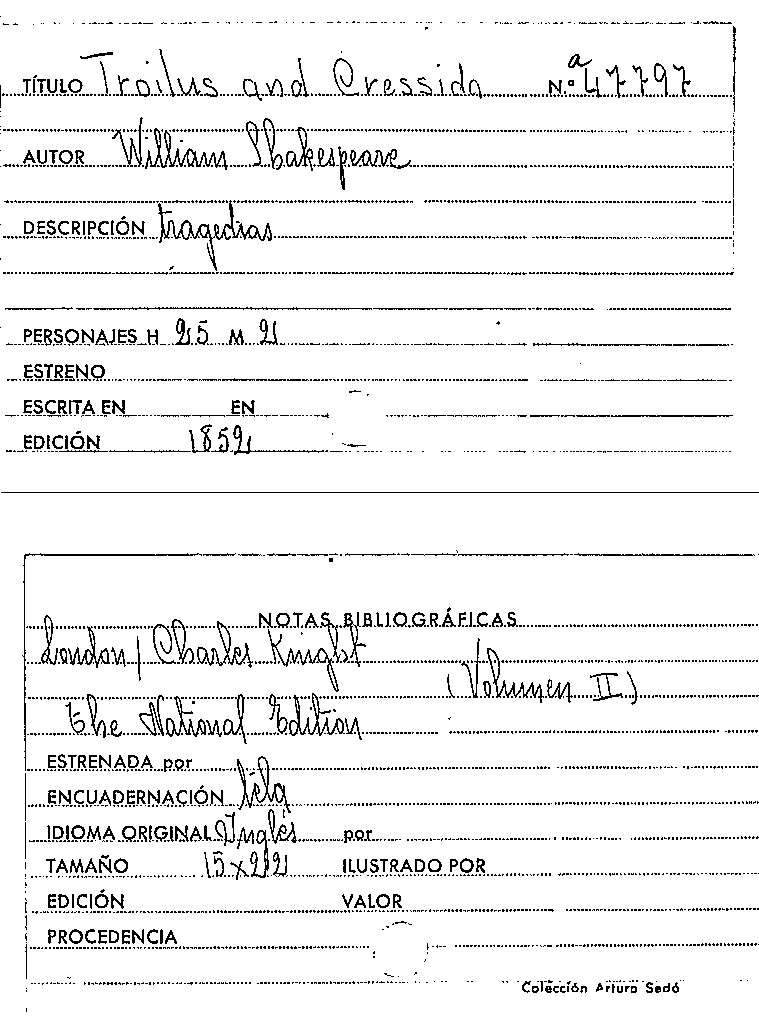 TÍTULO Troilus and Cressida N.º a 47797
AUTOR William Shakespeare
DESCRIPCIÓN tragedias
PERSONAJES H 25 M 2
ESTRENO
ESCRITA EN EN
EDICIÓN 1852
NOTAS BIBLIOGRÁFICAS
London / Charles Knight
(Volumen II)
The National Edition
ESTRENADA por
ENCUADERNACIÓN tela
IDIOMA ORIGINAL Inglés por
TAMAÑO 15x22 ILUSTRADO POR
EDICIÓN VALOR
PROCEDENCIA
Colección Arturo Sedó